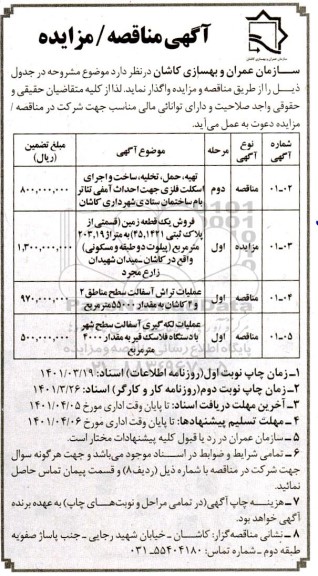 سازمان عمران و بهسازی کاشان
آگهی مناقصه / مزایده
سازمان عمران و بهسازی کاشان درنظر دارد موضوع مشروحه در جدول
ذیل را از طریق مناقصه و مزایده واگذار نماید. لذا از کلیه متقاضیان حقیقی و
حقوقی واجد صلاحیت و دارای توانائی مالی مناسب جهت شرکت در مناقصه /
مزایده دعوت به عمل می‌آید.
شماره آگهی
نوع آگهی
مرحله
موضوع آگهی
مبلغ تضمین (ریال)
۰۱-۰۲
مناقصه
دوم
تهیه، حمل، تخلیه، ساخت و اجرای
اسکلت فلزی جهت احداث آمفی تئاتر
بام ساختمان ستادی شهرداری کاشان
۸۰۰,۰۰۰,۰۰۰
۰۱-۰۳
مزایده
اول
فروش یک قطعه زمین (قسمتی از
پلاک ثبتی ۴۵,۱۴۲۱) به متراژ ۲۰۳,۱۹
مترمربع (پیلوت دو طبقه و مسکونی)
واقع در کاشان ـ میدان شهیدان
زارع مجرد
۱,۳۰۰,۰۰۰,۰۰۰
۰۱-۰۴
مناقصه
اول
عملیات تراش آسفالت سطح مناطق ۲
و ۴ کاشان به مقدار ۵۵۰۰۰ مترمربع
۹۷۰,۰۰۰,۰۰۰
۰۱-۰۵
مناقصه
اول
عملیات لکه گیری آسفالت سطح شهر
با دستگاه فلاسک قیر به مقدار ۴۰۰۰
مترمربع
۵۰۰,۰۰۰,۰۰۰
۱ـ زمان چاپ نوبت اول (روزنامه اطلاعات) اسناد: ۱۴۰۱/۰۳/۱۹
۲ـ زمان چاپ نوبت دوم (روزنامه کار و کارگر) اسناد: ۱۴۰۱/۳/۲۶
۳ـ آخرین مهلت دریافت اسناد: تا پایان وقت اداری مورخ ۱۴۰۱/۰۴/۰۵
۴ـ مهلت تسلیم پیشنهادها: تا پایان وقت اداری مورخ ۱۴۰۱/۰۴/۰۶
۵ـ سازمان عمران در رد یا قبول کلیه پیشنهادات مختار است.
۶ـ تمامی شرایط و ضوابط در اسناد موجود می‌باشد و جهت هرگونه سوال
جهت شرکت در مناقصه با شماره ذیل (ردیف ۸) و قسمت پیمان تماس حاصل
نمائید.
۷ـ هزینه چاپ آگهی (در تمامی مراحل و نوبت‌های چاپ) به عهده برنده
آگهی خواهد بود.
۸ـ نشانی مناقصه‌گزار: کاشان - خیابان شهید رجایی - جنب پاساژ صفویه
طبقه دوم - شماره تماس: ۵۵۴۰۴۱۸۰-۰۳۱